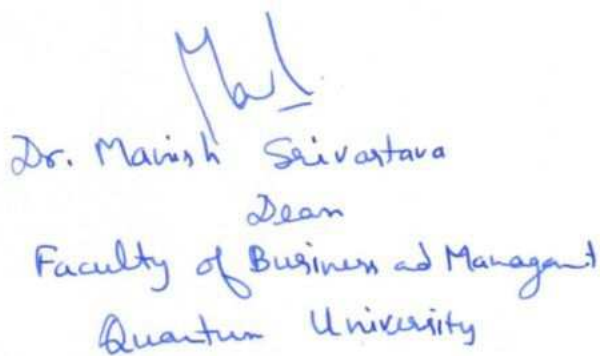 Dr. Manish Srivastava
Dean
Faculty of Business and Managament
Quantum University